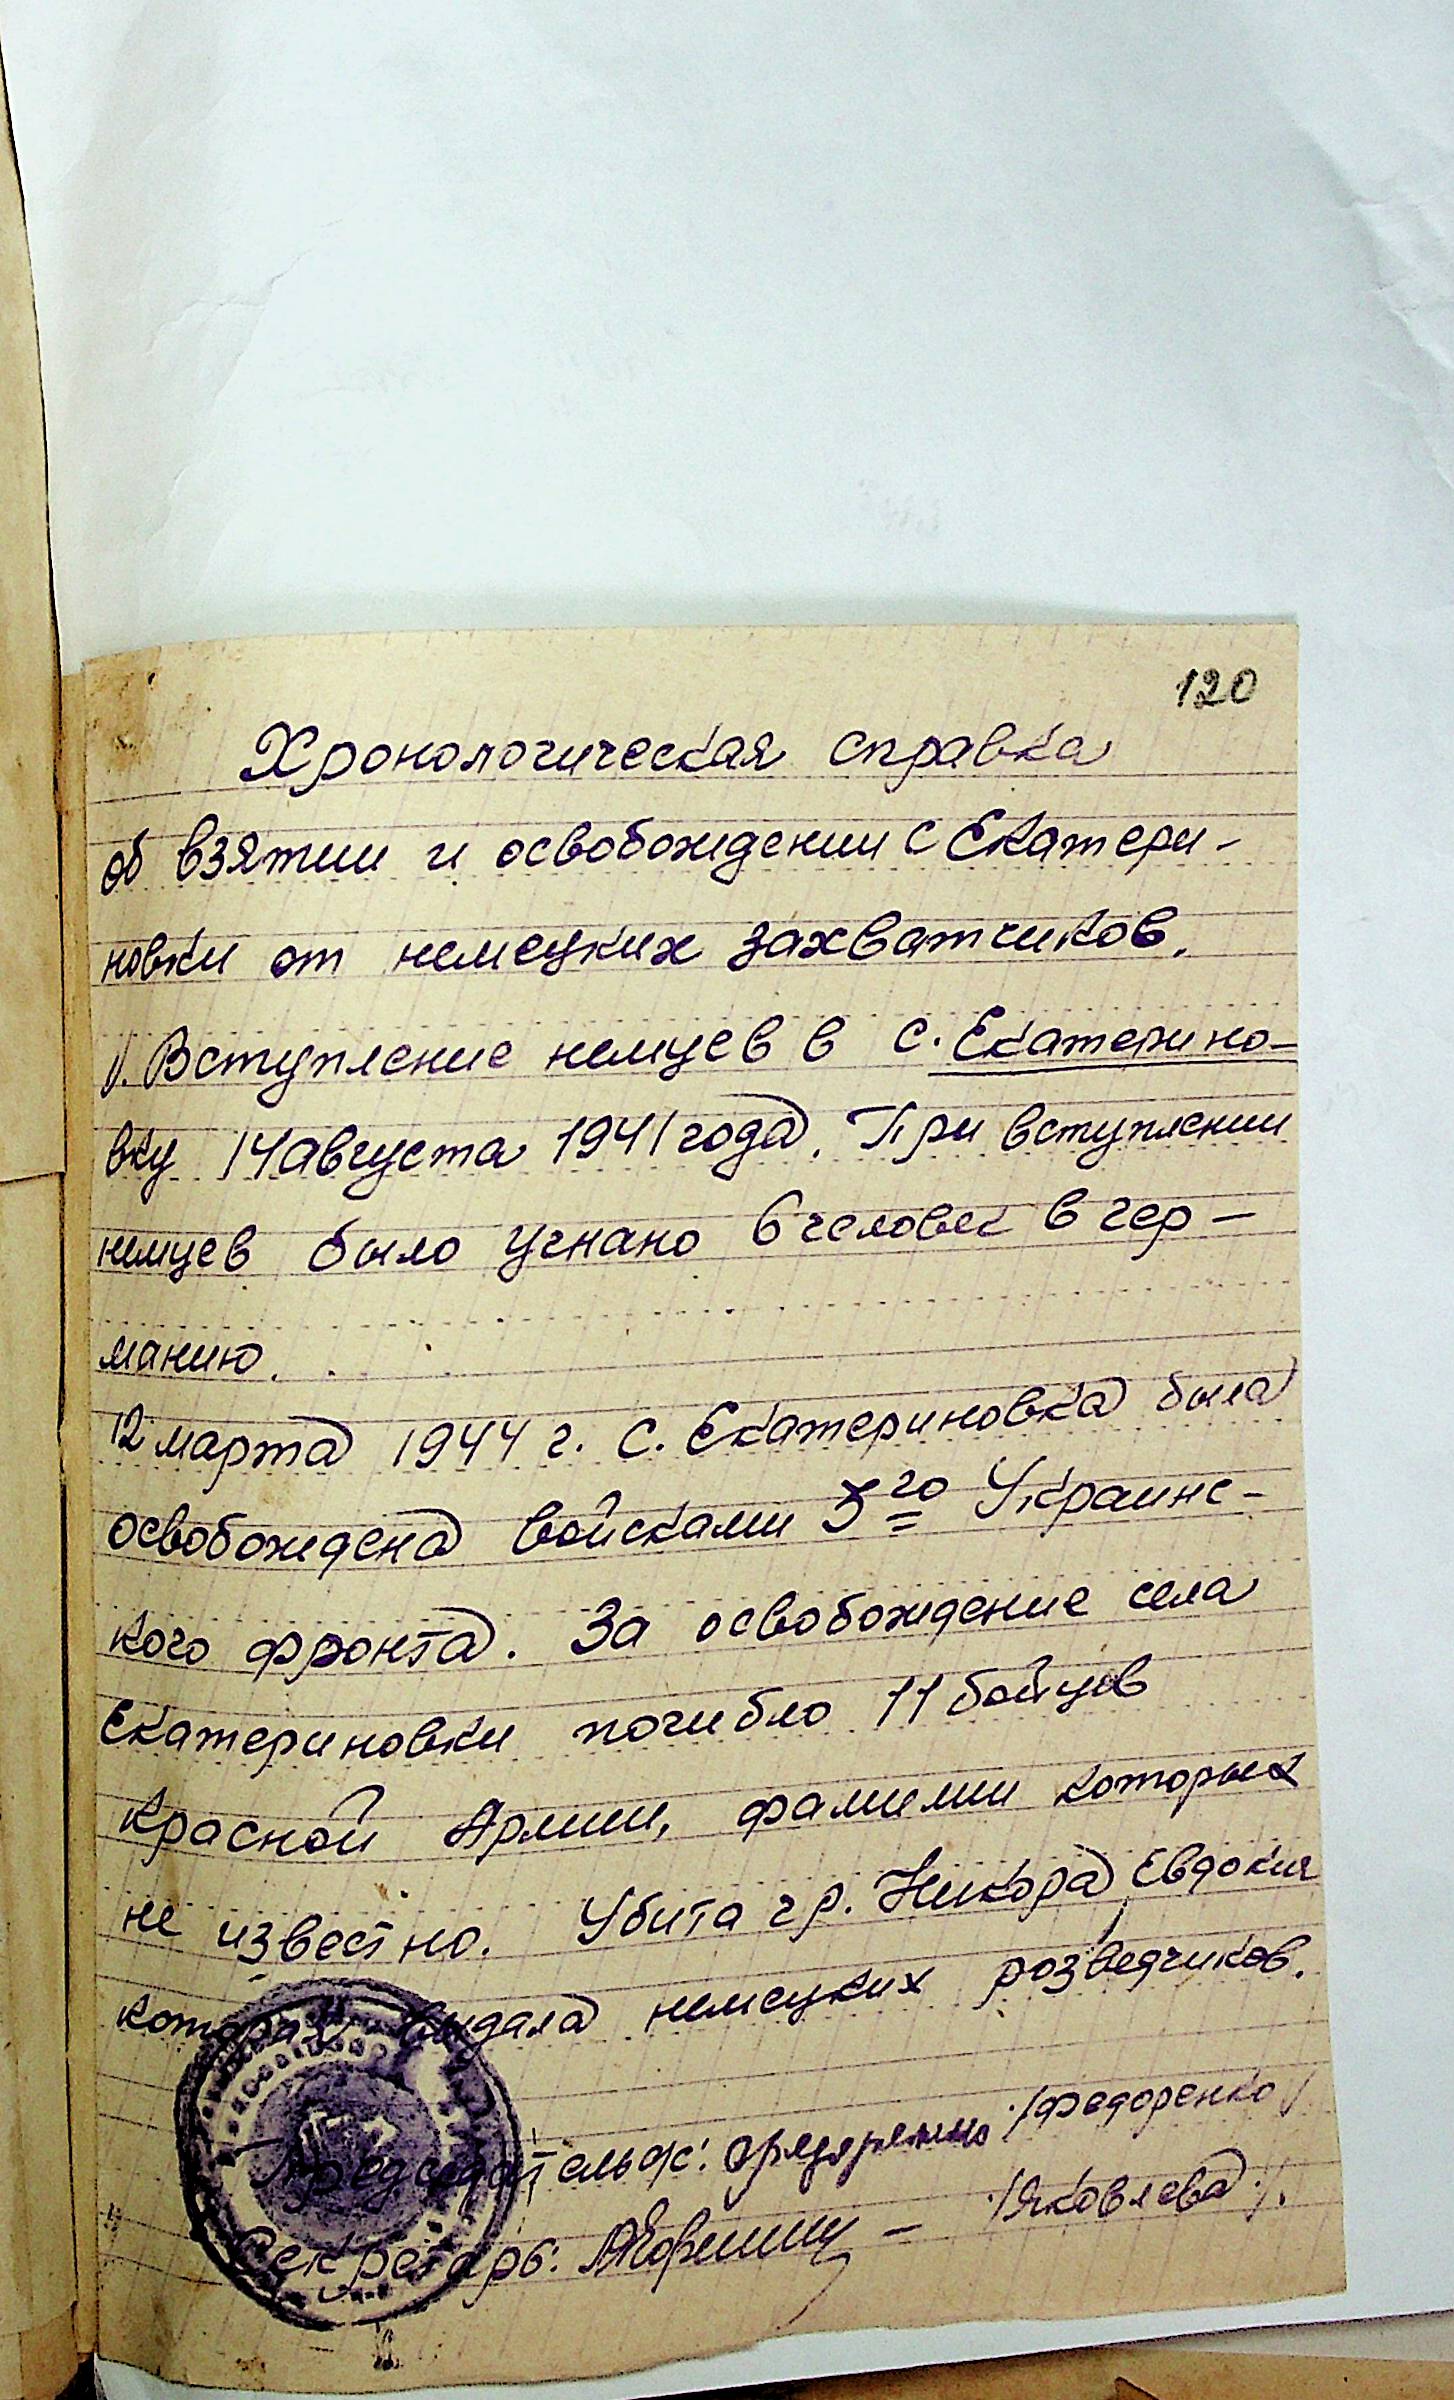 120
Хронологическая справка
об взятии и освобождении с Екатери-
новки от немецких захватчиков.
1. Вступление немцев в с. Екатерино-
вку 14 августа 1941 года. При вступлении
немцев было угнано 6 человек в гер-
манию.
12 марта 1944 г. с. Екатериновка была
освобождена войсками 3го Украинс-
кого фронта. За освобождение села
Екатериновки погибло 11 бойцов
Красной Армии, фамилии которых
не известно. Убита гр. Никора Евдокия
которая выдала немецких розведчиков.
Председатель с/с: /Федоренко/
Секретарь: - /Яковлева/.